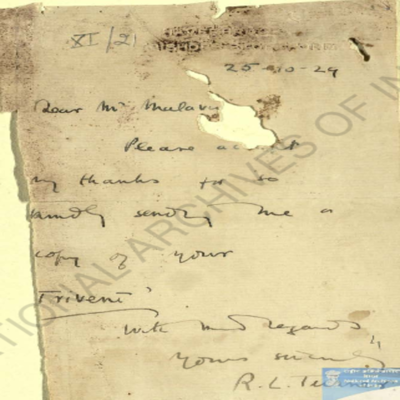 XI/21
25-10-29
Dear Mr
Please accept
my thanks for so
kindly sending me a
copy of your
Triveni
with kind regards
Yours sincerely
R. L.
NATIONAL ARCHIVES OF IN